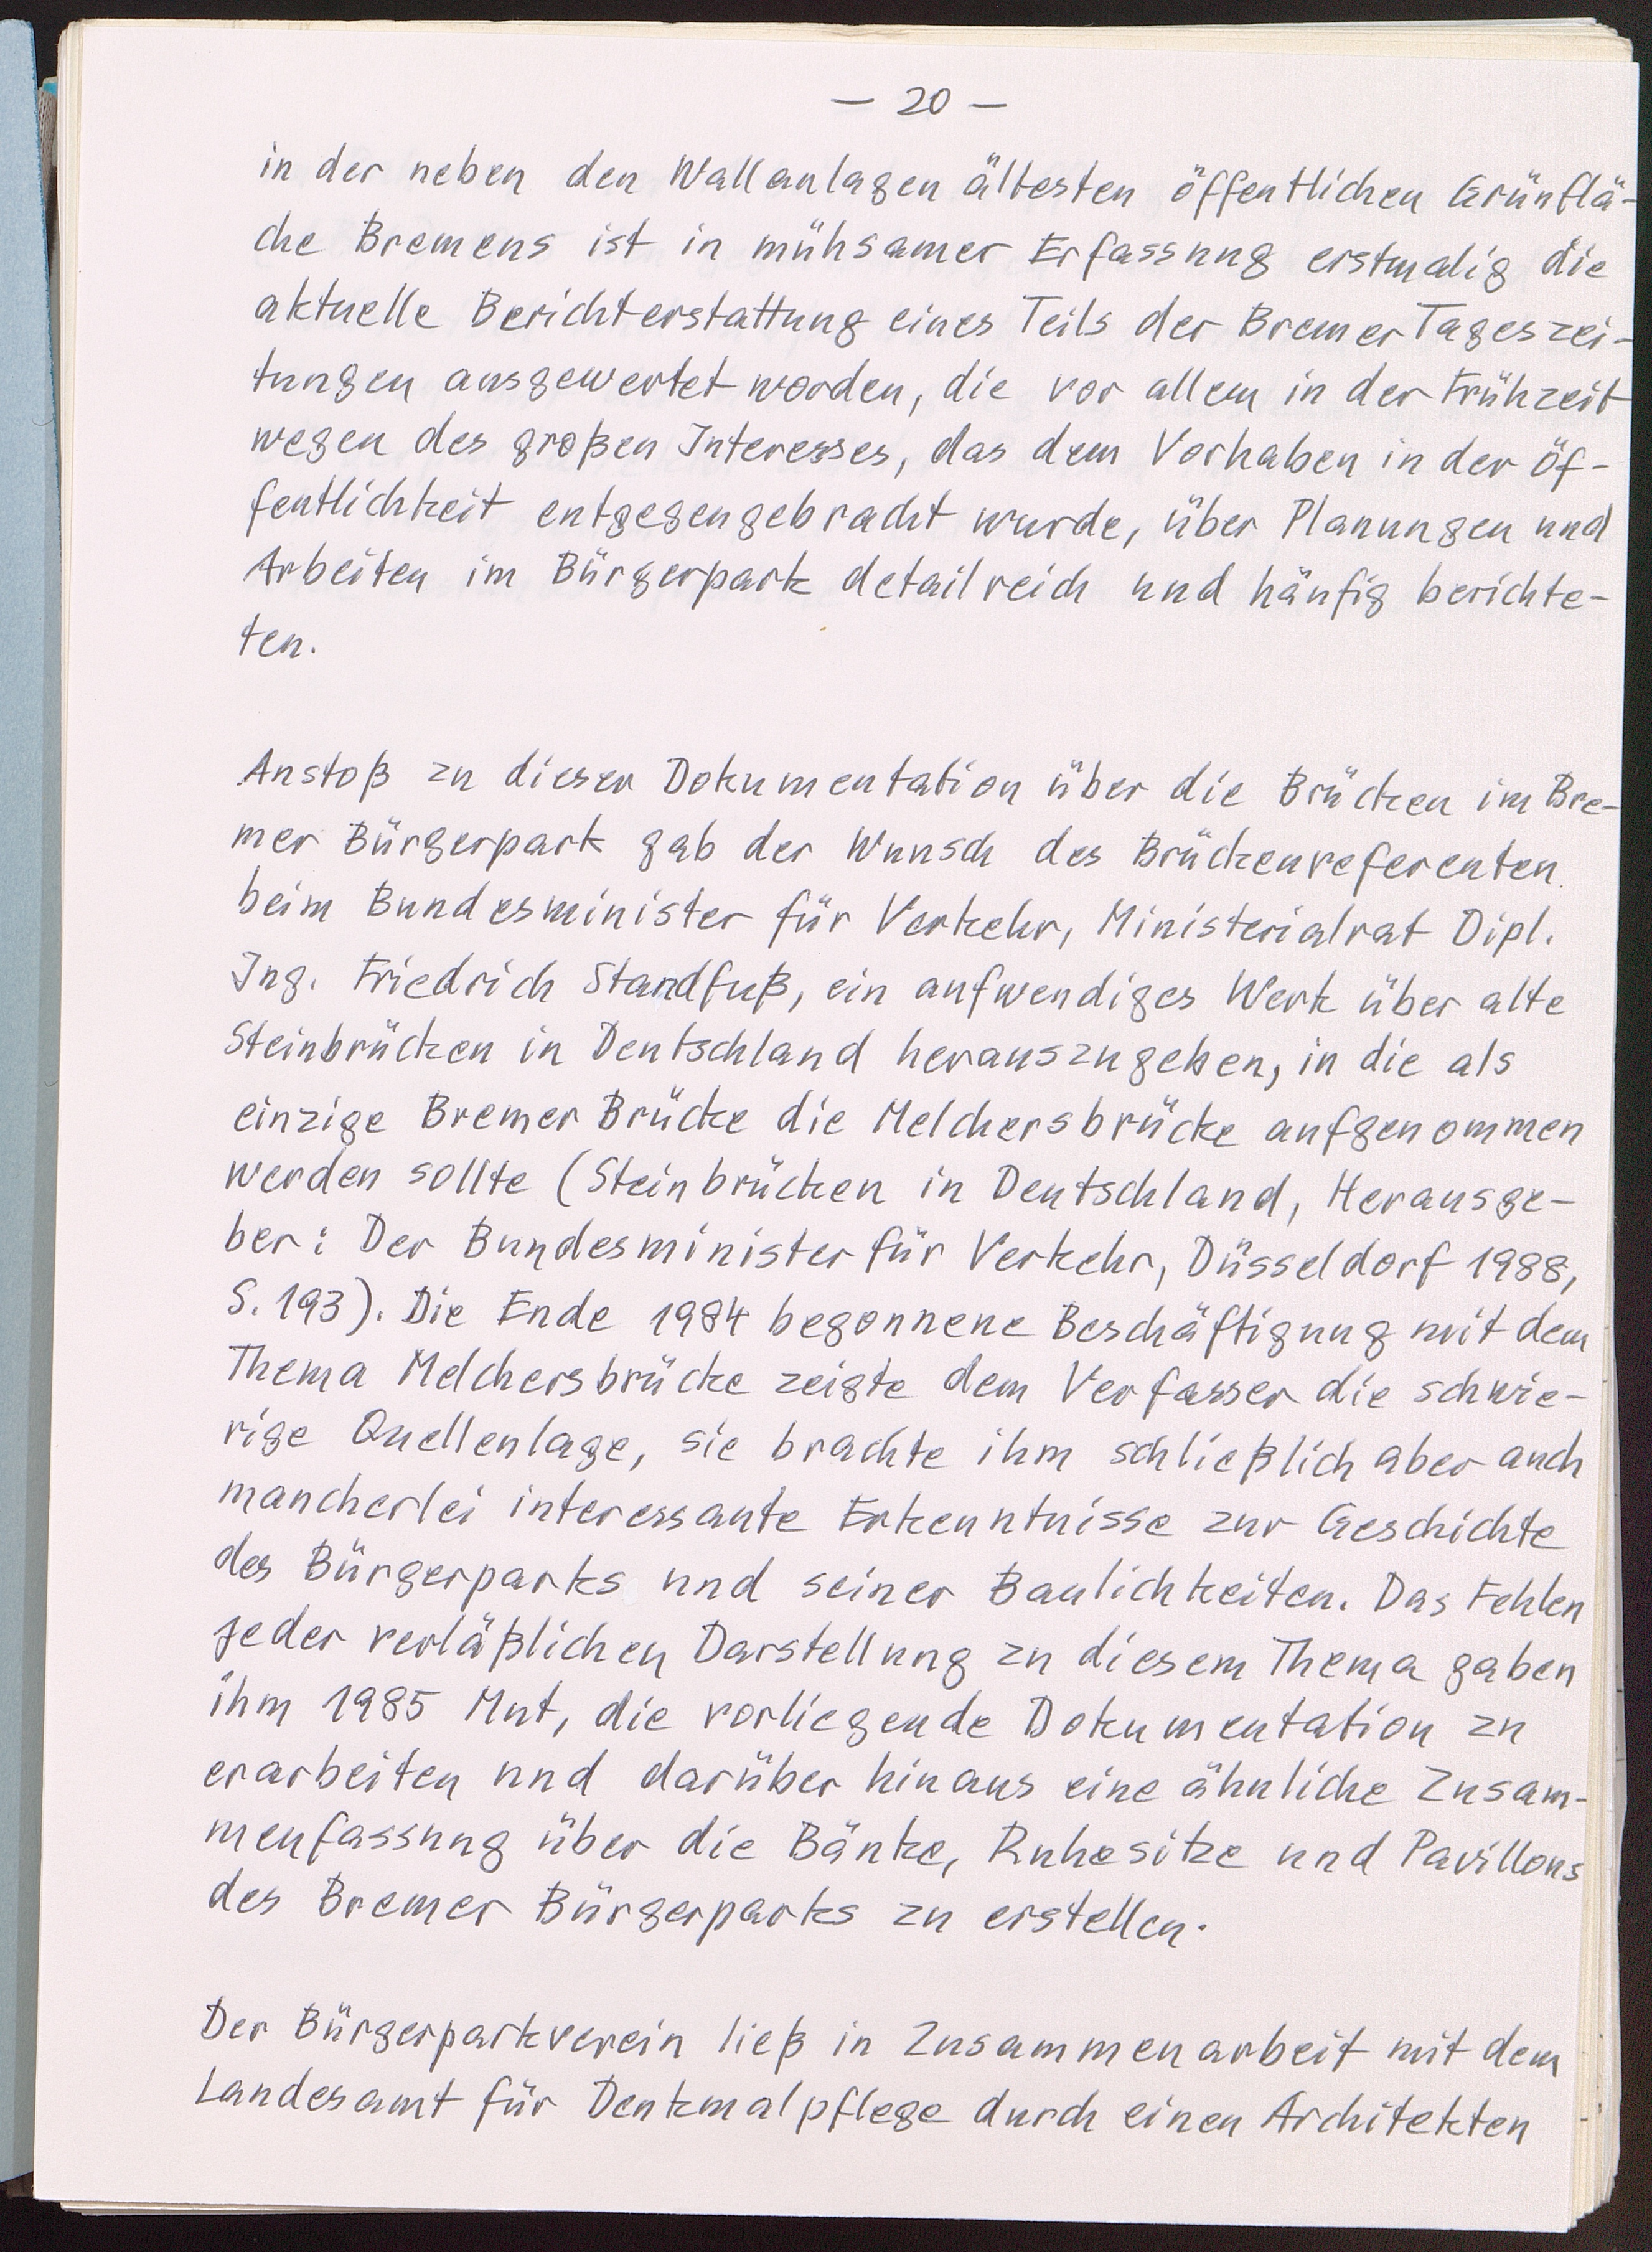 — 20 —
in der neben den Wallanlagen ältesten öffentlichen Grünflä-
che Bremens ist in mühsamer Erfassung erstmalig die
aktuelle Berichterstattung eines Teils der Bremer Tageszei-
tungen ausgewertet worden, die vor allem in der Frühzeit
wegen des großen Interesses, das dem Vorhaben in der Öf-
fentlichkeit entgegengebracht wurde, über Planungen und
Arbeiten im Bürgerpark detailreich und häufig berichte-
ten.
Anstoß zu dieser Dokumentation über die Brücken im Bre-
mer Bürgerpark gab der Wunsch des Brückenreferenten
beim Bundesminister für Verkehr, Ministerialrat Dipl.
Ing. Friedrich Standfuß, ein aufwendiges Werk über alte
Steinbrücken in Deutschland herauszugeben, in die als
einzige Bremer Brücke die Melchersbrücke aufgenommen
werden sollte (Steinbrücken in Deutschland, Herausge-
ber: Der Bundesminister für Verkehr, Düsseldorf 1988,
S. 193). Die Ende 1984 begonnene Beschäftigung mit dem
Thema Melchersbrücke zeigte dem Verfasser die schwie-
rige Quellenlage, sie brachte ihm schließlich aber auch
mancherlei interessante Erkenntnisse zur Geschichte
des Bürgerparks und seiner Baulichkeiten. Das Fehlen
jeder verläßlichen Darstellung zu diesem Thema gaben
ihm 1985 Mut, die vorliegende Dokumentation zu
erarbeiten und darüber hinaus eine ähnliche Zusam-
menfassung über die Bänke, Ruhesitze und Pavillons
des Bremer Bürgerparks zu erstellen.
Der Bürgerparkverein ließ in Zusammenarbeit mit dem
Landesamt für Denkmalpflege durch einen Architekten